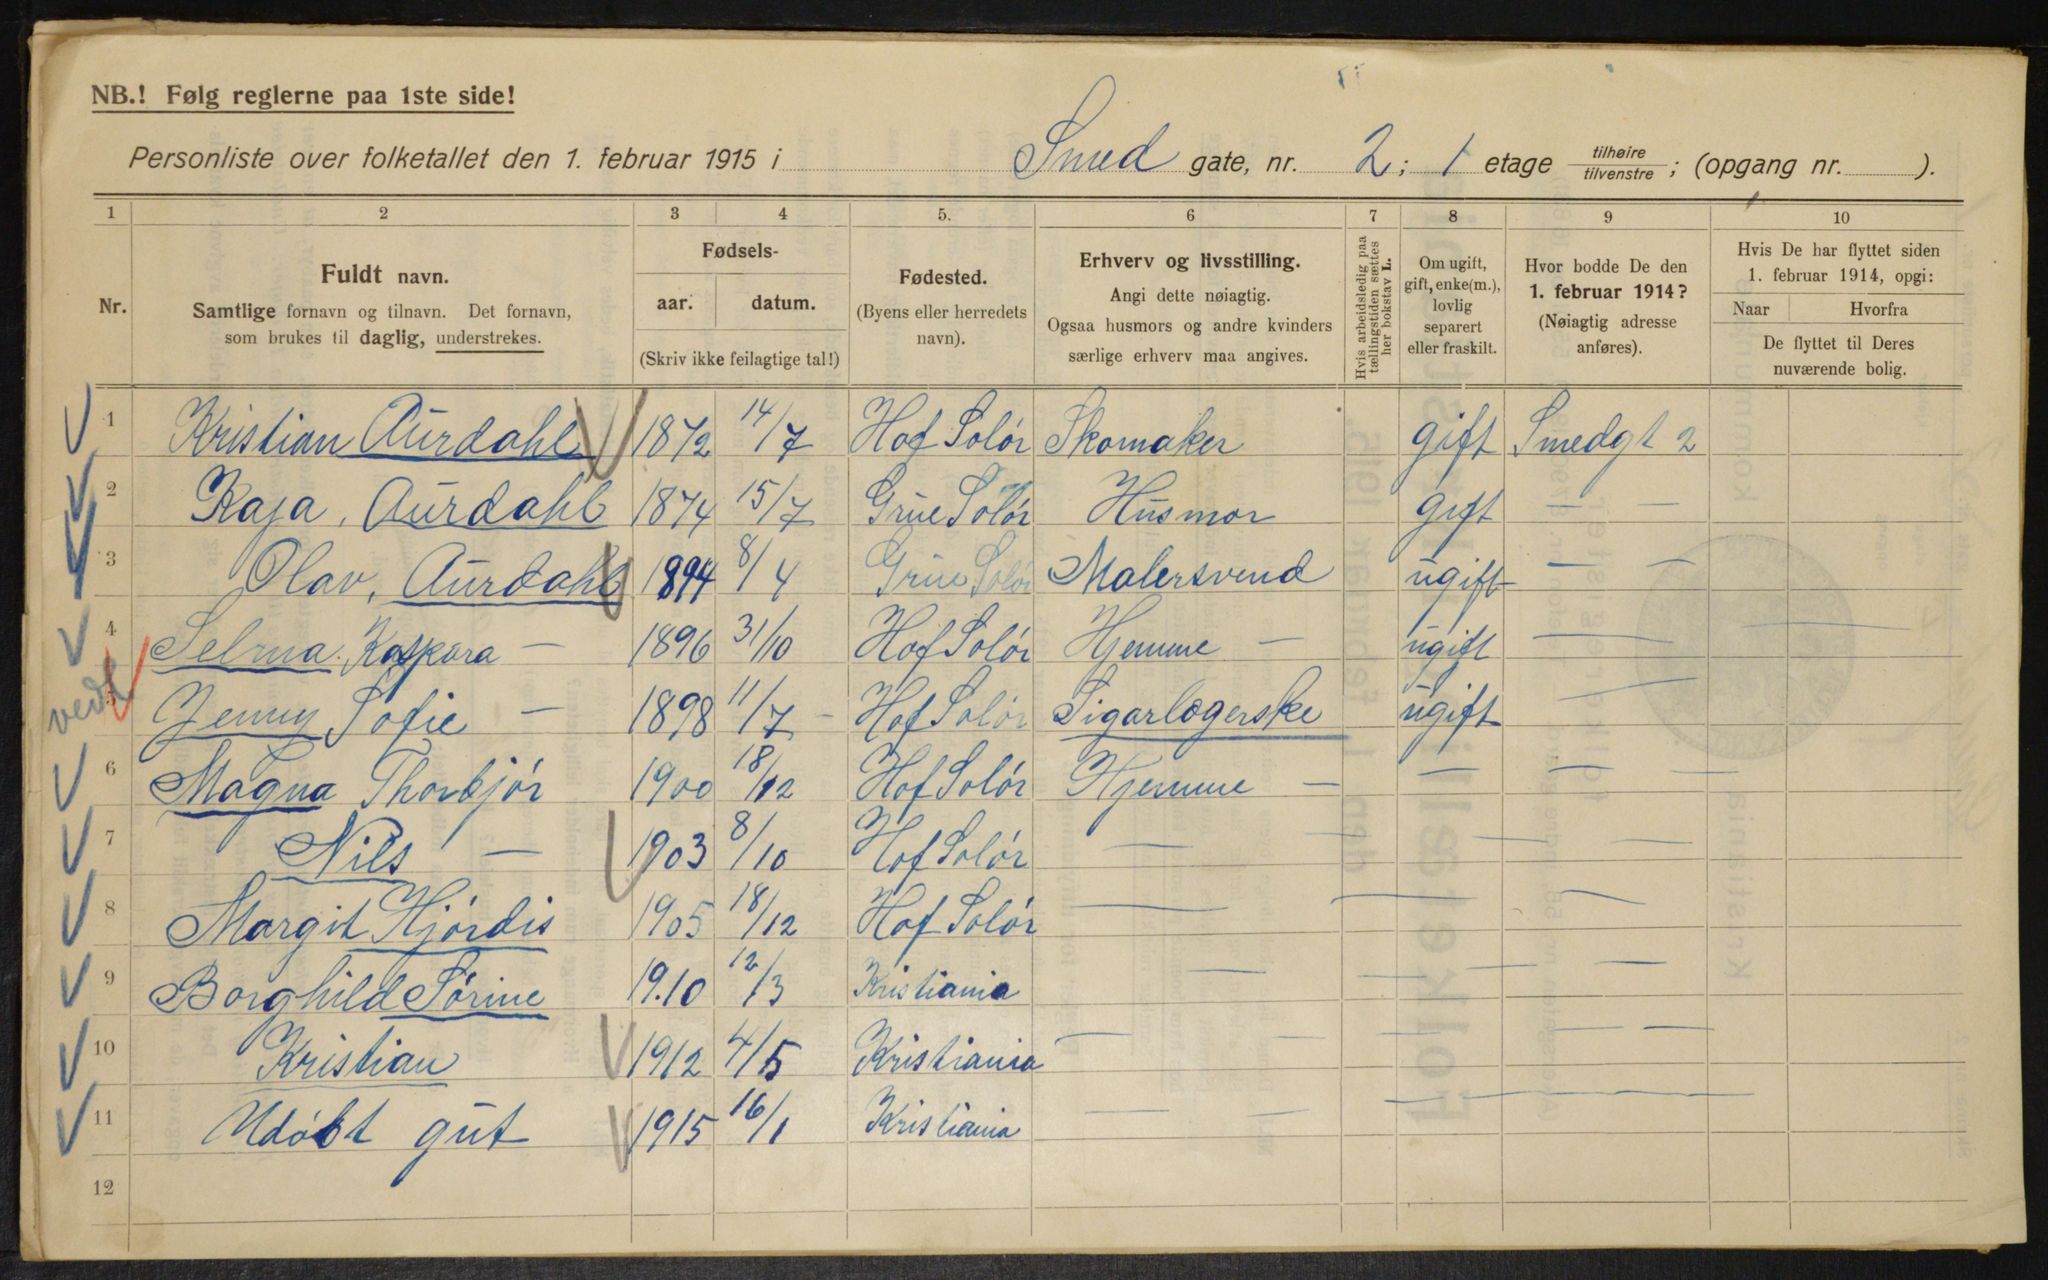 NB.! Følg reglerne paa 1ste side!
Personliste over folketallet den 1. februar 1915 i Smed gate, nr. 2; 1 etage tilhøire/tilvenstre; (opgang nr. ).
1 2 3 4 5. 6 7 8 9 10
Nr.
Fuldt navn.
Samtlige fornavn og tilnavn. Det fornavn,
som brukes til daglig, understrekes.
Fødsels-
aar. datum.
(Skriv ikke feilagtige tal!)
Fødested.
(Byens eller herredets
navn).
Erhverv og livsstilling.
Angi dette nøiagtig.
Ogsaa husmors og andre kvinders
særlige erhverv maa angives.
Hvis arbeidsledig paa
tællingstiden sættes
her bokstav L.
Om ugift,
gift, enke(m.),
lovlig
separert
eller fraskilt.
Hvor bodde De den
1. februar 1914?
(Nøiagtig adresse
anføres).
Hvis De har flyttet siden
1. februar 1914, opgi:
Naar Hvorfra
De flyttet til Deres
nuværende bolig.
1 Kristian Aurdahl 1872 14/7 Hof Solør Skomaker gift Smedgt 2
2 Kaja, Aurdahl 1874 15/7 Grue Solør Husmor gift — —
3 Olav, Aurdahl 1894 8/4 Grue Solør Malersvend ugift — —
4 Selma Kaspara — 1896 31/10 Hof Solør Hjemme — ugift — —
vedl 5 Jenny Sofie — 1898 11/7 — Hof Solør Sigarløgerske ugift —
6 Magna Thorbjør 1900 18/12 Hof Solør Hjemme — — — —
7 Nils — 1903 8/10 Hof Solør — — — —
8 Margit Hjørdis 1905 18/12 Hof Solør — — — —
9 Borghild Sørine 1910 12/3 Kristiania — — — — —
10 Kristian 1912 4/5 Kristiania — — — — —
11 Udøbt gut 1915 16/1 Kristiania — — —
12